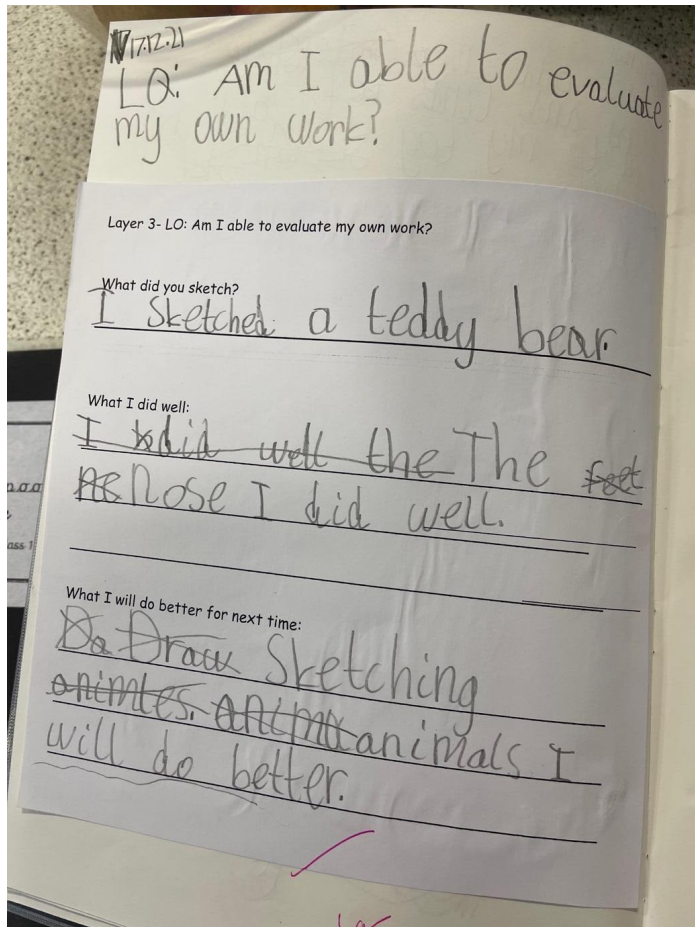 17.12.21
LQ: Am I able to evaluate
my own work?
Layer 3- LO: Am I able to evaluate my own work?
What did you sketch?
I sketched a teddy bear.
What I did well:
I did well the The feet
ne nose I did well.
What I will do better for next time:
Do Draw Sketching
animles. anima animals I
will do better.
ass 1